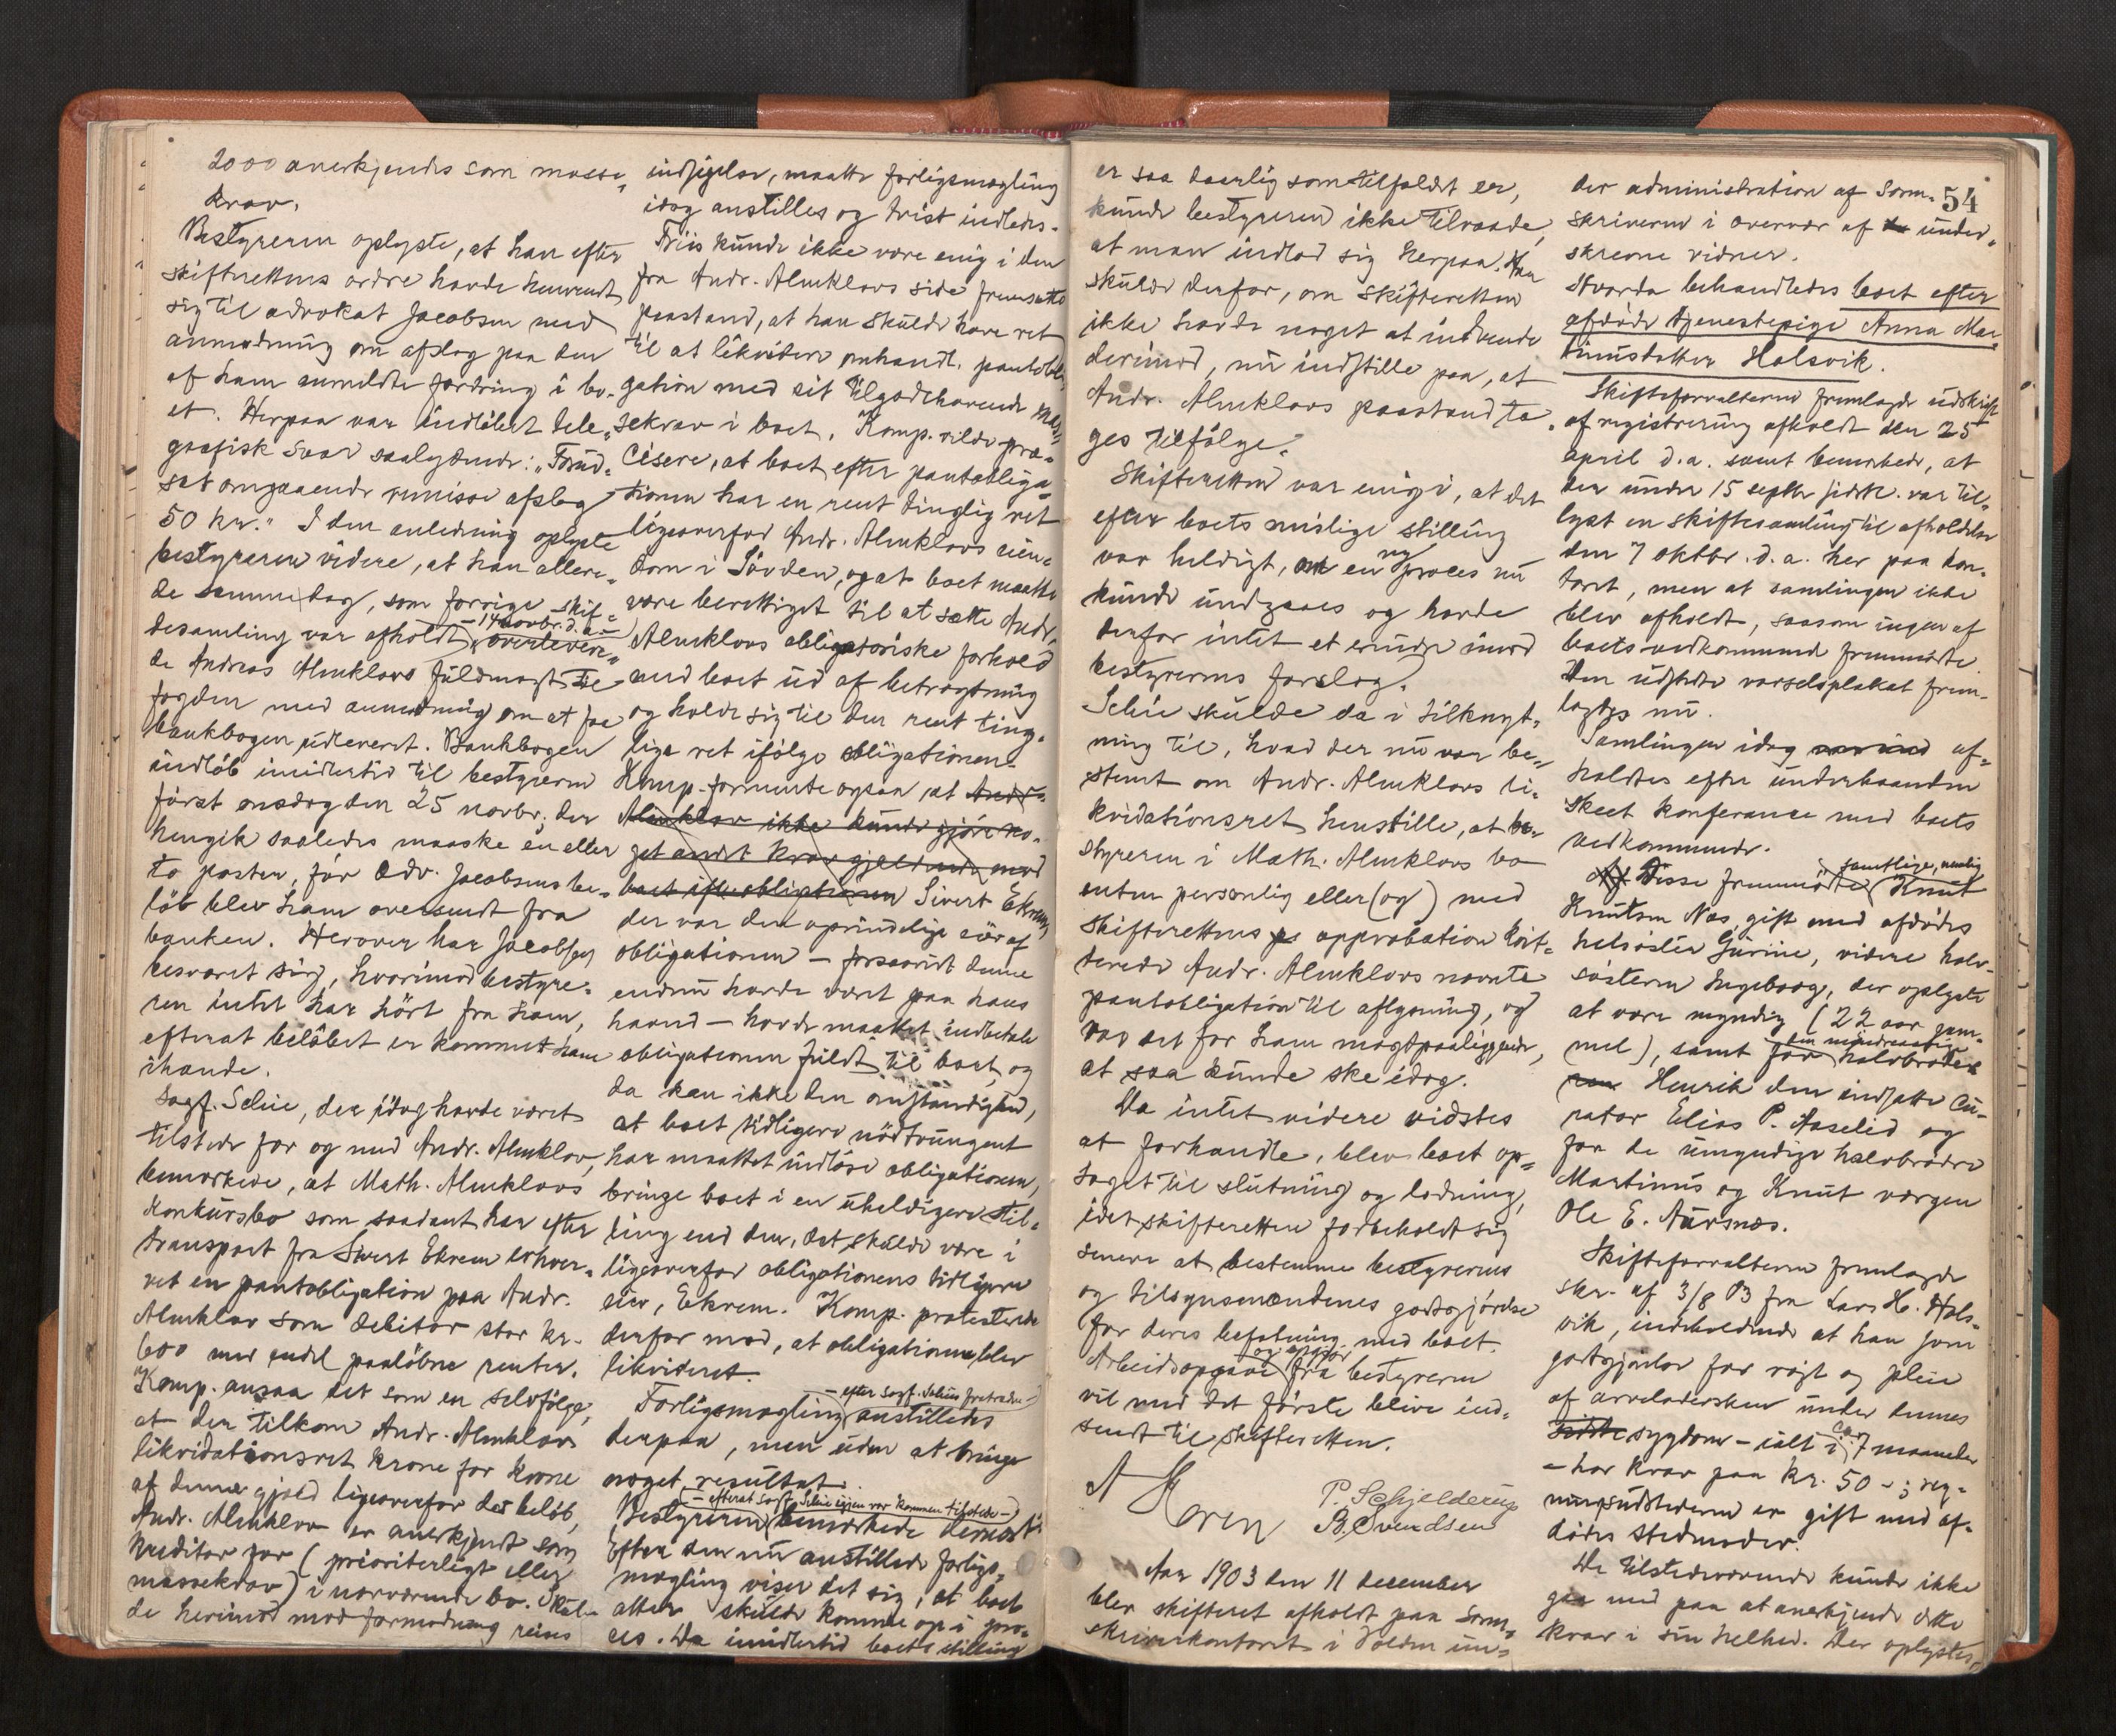 2000 anerkjendes som masse„
krav.
Bestyreren oplyste, at han efter
skifterettens ordre havde henvendt
sig til advokat Jacobsen med
anmodning om afslag paa den
af ham anmeldte fordring i bo-
et. Herpaa var indløbet tele„
grafisk svar saalydende: „Forud„
sat omgaaende remisse afslag
50 kr." I den anledning oplyste
bestyreren videre, at han allere„
de samme dag, som forrige skif„
tesamling var afholdt – 14 novbr. d.a. – overlevere„
de Andreas Almklovs fuldmagt til
fogden med anmodning om at faa
bankbogen udleveret. Bankbogen
indløb imidlertid til bestyreren
først onsdag den 25 novbr; der
hengik saaledes maaske en eller
to poster, før Adv. Jacobsens be-
løb blev ham oversendt fra
banken. Herover har Jacobsen
besværet sig, hvorimod bestyre-
ren intet har hørt fra ham,
efterat beløbet er kommet ham
ihænde.
Sagf. Schie, der idag havde været
tilstede for og med Andr. Almklov,
bemærkede, at Math. Almklovs
konkursbo som saadant har efter
transport fra Sivert Ekrem erhver„
vet en pantobligation paa Andr.
Almklov som debitor stor kr.
600 med endel paaløbne renter.
Komp. ansaa det som en selvfølge,
at der tilkom Andr. Almklov
likvidationsret krone for krone
af denne gjæld ligeoverfor det beløb,
Andr. Almklov er anerkjendt som
kreditor for (prioriterligt eller
massekrav) i nærværende bo. Skul-
de herimod mod formodning reises
indsigelse, maatte forligsmægling
idag anstilles og tvist indledes.
Friis kunde ikke være enig i den
fra Andr. Almklovs side fremsatte
paastand, at han skulde have ret
til at likvidere omhandl. pantobli„
gation med sit tilgodehavende mas„
sekrav i boet. Komp. vilde præ-
cisere, at boet efter pantobliga„
tionen har en rent tinglig ret
ligeoverfor Andr. Almklovs eien„
dom i Søvden, og at boet maatte
være berettiget til at sætte Andr.
Almklovs obligatoriske forhold
med boet ud af betragtning
og holde sig til den rent ting„
lige ret ifølge obligationen.
Komp. formente ogsaa, at Andr.
Almklov ikke kunde gjøre no-
get andet krav gjældende mod
boet ifl. obligationen Sivert Ekrem,
der var den oprindelige eier af
obligationen – forsaavidt denne
endnu havde været paa hans
haand – havde maattet indbetale
obligationen fuldt til boet, og
da kan ikke den omstændighed,
at boet tidligere nødtvungent
har maattet indløse obligationen,
bringe boet i en uheldigere stil„
ling end den, det skulde være i
ligeoverfor obligationens tidligere
eier, Ekrem. Komp. protesterede
derfor mod, at obligationen blev
likvideret.
Forligsmægling – efter sagf. Schies fratræden – anstilledes
derpaa, men uden at bringe
noget resultat.
Bestyreren – efterat sagf. Schie igjen var kommen tilstede – bemærkede dernæst:
Efter den nu anstillede forligs„
mægling viser det sig, at boet
atter skulde komme op i pro-
ces. Da imidlertid boets stilling
er saa daarlig som tilfældet er,
kunde bestyreren ikke tilraade,
at man indlod sig herpaa. Han
skulde derfor, om skifteretten
ikke havde noget at indvende
derimod, nu indstille paa, at
Andr. Almklovs paastand ta„
ges tilfølge.
Skifteretten var enig i, at det
efter boets mislige stilling
var heldigt, om en ny proces nu
kunde undgaaes og havde
derfor intet at erindre imod
bestyrerens forslag.
Schie skulde da i tilknyt„
ning til, hvad der nu var be„
stemt om Andr. Almklovs li-
kvidationsret henstille, at be-
styreren i Math. Almklovs bo
enten personlig eller (og) med
skifterettens approbation kvit-
terede Andr. Almklovs nævnte
pantobligation til aflysning, og
var det for ham magtpaaliggende,
at saa kunde ske idag.
Da intet videre vidstes
at forhandle, blev boet op-
taget til slutning og lodning,
idet skifteretten forbeholdt sig
senere at bestemme bestyrerens
og tilsynsmændenes godtgjørelse
for deres befatning med boet.
Arbeidsopgave og opgjør fra bestyreren
vil med det første blive ind„
sendt til skifteretten.
A Koren
P. Schjelderup
B. Svendsen
Aar 1903 den 11 december
blev skifteret afholdt paa Soren„
skriverkontoret i Volden un„
54
der administration af Soren„
skriveren i overvær af de under„
skrevne vidner.
Hvorda behandledes boet efter
afdøde tjenestepige Anna Mar„
tinusdatter Holsvik.
Skifteforvalteren fremlagde udskrift
af registrering afholdt den 25
april d.a. samt bemærkede, at
der under 15 septbr sidstl. var til„
lyst en skiftesamling til afholdelse
den 7 oktbr. d.a. her paa kon-
toret, men at samlingen ikke
blev afholdt, saasom ingen af
boets vedkommende fremmødte.
Den udstedte varselsplakat frem-
lagdes nu.
Samlingen idag af-
holdtes efter underhaanden
skeet konferance med boets
vedkommende.
Af Disse fremmødte samtlige, nemlig Knut
Knutsen Næs gift med afdødes
helsøster Gurine, videre halv-
søsteren Ingeborg, der oplyste
at være myndig (22 aar gam-
mel), samt for den mindreaarige halvbroder
Henrik den indsatte cu-
rator Elias P. Aaselid og
for de umyndige halvbrødre
Martinus og Knut værgen
Ole E. Aursnes.
Skifteforvalteren fremlagde
skr. af 3/8 03 fra Lars H. Hols-
vik, indeholdende at han som
godtgjørelse for røgt og pleie
af arveladersken under dennes
sidste sygdom – ialt i ca. 7 maaneder
– har krav paa kr. 50 -; reg-
ningsudstederen er gift med af-
dødes stedmoder.
De tilstedeværende kunde ikke
gaa med paa at anerkjende dette
krav i sin helhed. Der oplystes,